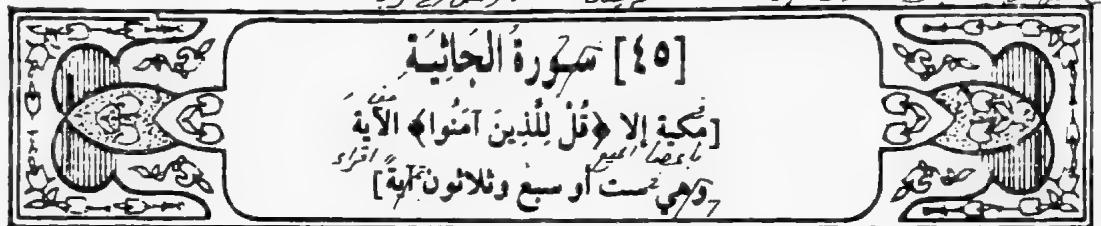 [٤٥] سورة الجَاثِيَة
[مكية إلا ﴿قُلْ لِلَّذِينَ آمَنُوا﴾ الآية
وهي ست أو سبع وثلاثون آية]